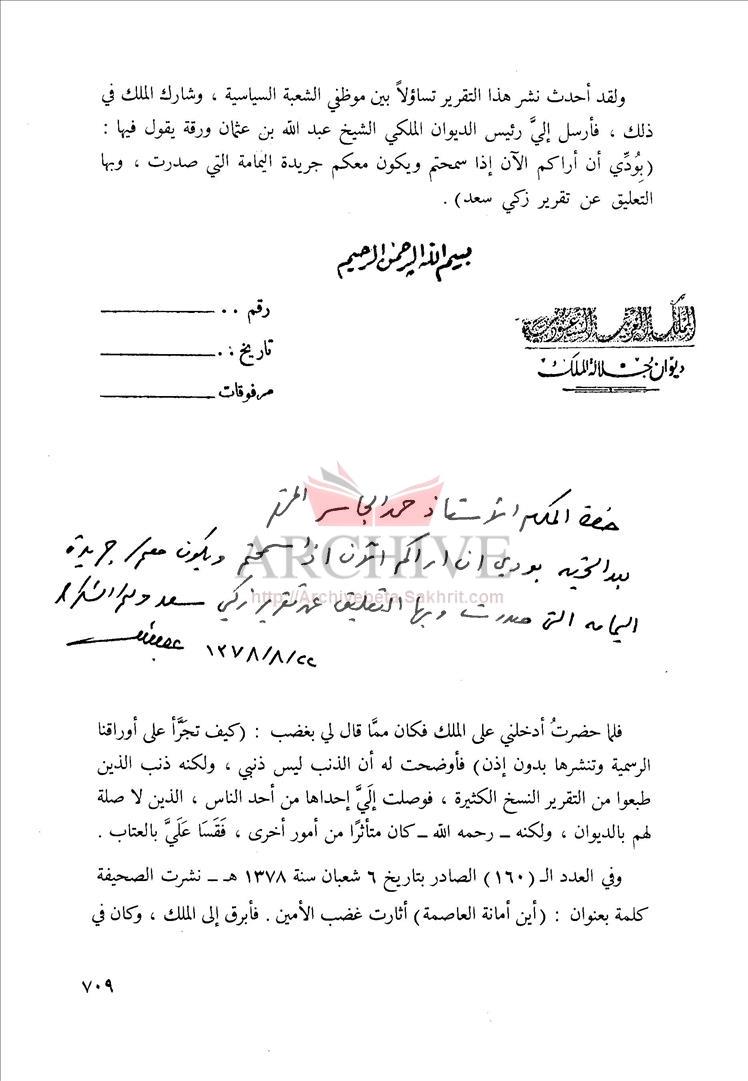 ولقد أحدث نشر هذا التقرير تساؤلاً بين موظفي الشعبة السياسية ، وشارك الملك في
ذلك ، فأرسل إليَّ رئيس الديوان الملكي الشيخ عبد الله بن عثمان ورقة يقول فيها :
(بِوُدِّي أن أراكم الآن إذا سمحتم ويكون معكم جريدة اليمامة التي صدرت ، وبها
التعليق عن تقرير زكي سعد) .
بسم الله الرحمن الرحيم
المملكة العربية السعودية
ديوان جلالة الملك
رقم ..
تاريخ ..
مرفوقات
ARCHIVE
http://Archivebeta.Sakhrit.com
حضرة المكرم الأستاذ حمد الجاسر المحترم
بعد التحية بودي ان اراكم الآن اذا سمحتم ويكون معكم جريدة
اليمامه التي صدرت وبها التعليق عن تقرير زكي سعد ولكم الشكر
١٣٧٨/٨/٢٢
فلما حضرتُ أدخلني على الملك فكان ممَّا قال لي بغضب : (كيف تجَرَّأ على أوراقنا
الرسمية وتنشرها بدون إذن) فأوضحت له أن الذنب ليس ذنبي ، ولكنه ذنب الذين
طبعوا من التقرير النسخ الكثيرة ، فوصلت إلَيَّ إحداها من أحد الناس ، الذين لا صلة
لهم بالديوان ، ولكنه ــ رحمه الله ــ كان متأثرًا من أمور أخرى ، فَقَسَا عَلَيَّ بالعتاب .
وفي العدد الـ (١٦٠) الصادر بتاريخ ٦ شعبان سنة ١٣٧٨ هـ ــ نشرت الصحيفة
كلمة بعنوان : (أين أمانة العاصمة) أثارت غضب الأمين . فأبرق إلى الملك ، وكان في
٧٠٩